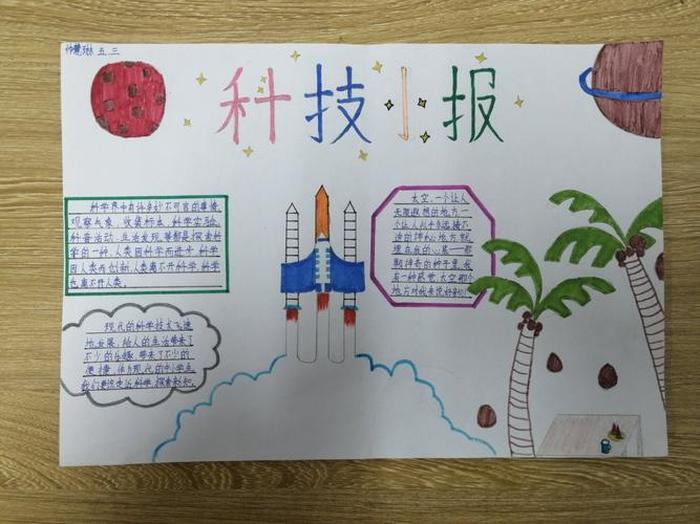 五.三
科技小报
科学界中有许多妙不可言的事情,
观察气象,收集标本,科学实验,
科普活动,生活发现,等都是探索科
学的一种,人类因科学而进步,科学
因人类而创新,人类离不开科学,科学
也离不开人类。
太空,一个让人
无限遐想的地方,一
个让人
的神秘地方,就
现在我的心里
期神奇的种子里,我
有一种感觉,太空那个
地方对我来说好
现代的科学技术飞速
地发展,给人的生活带来了
不少的乐趣,带来了不少的
便捷,作为现代的中学生
我们要走近科学,探索秘知